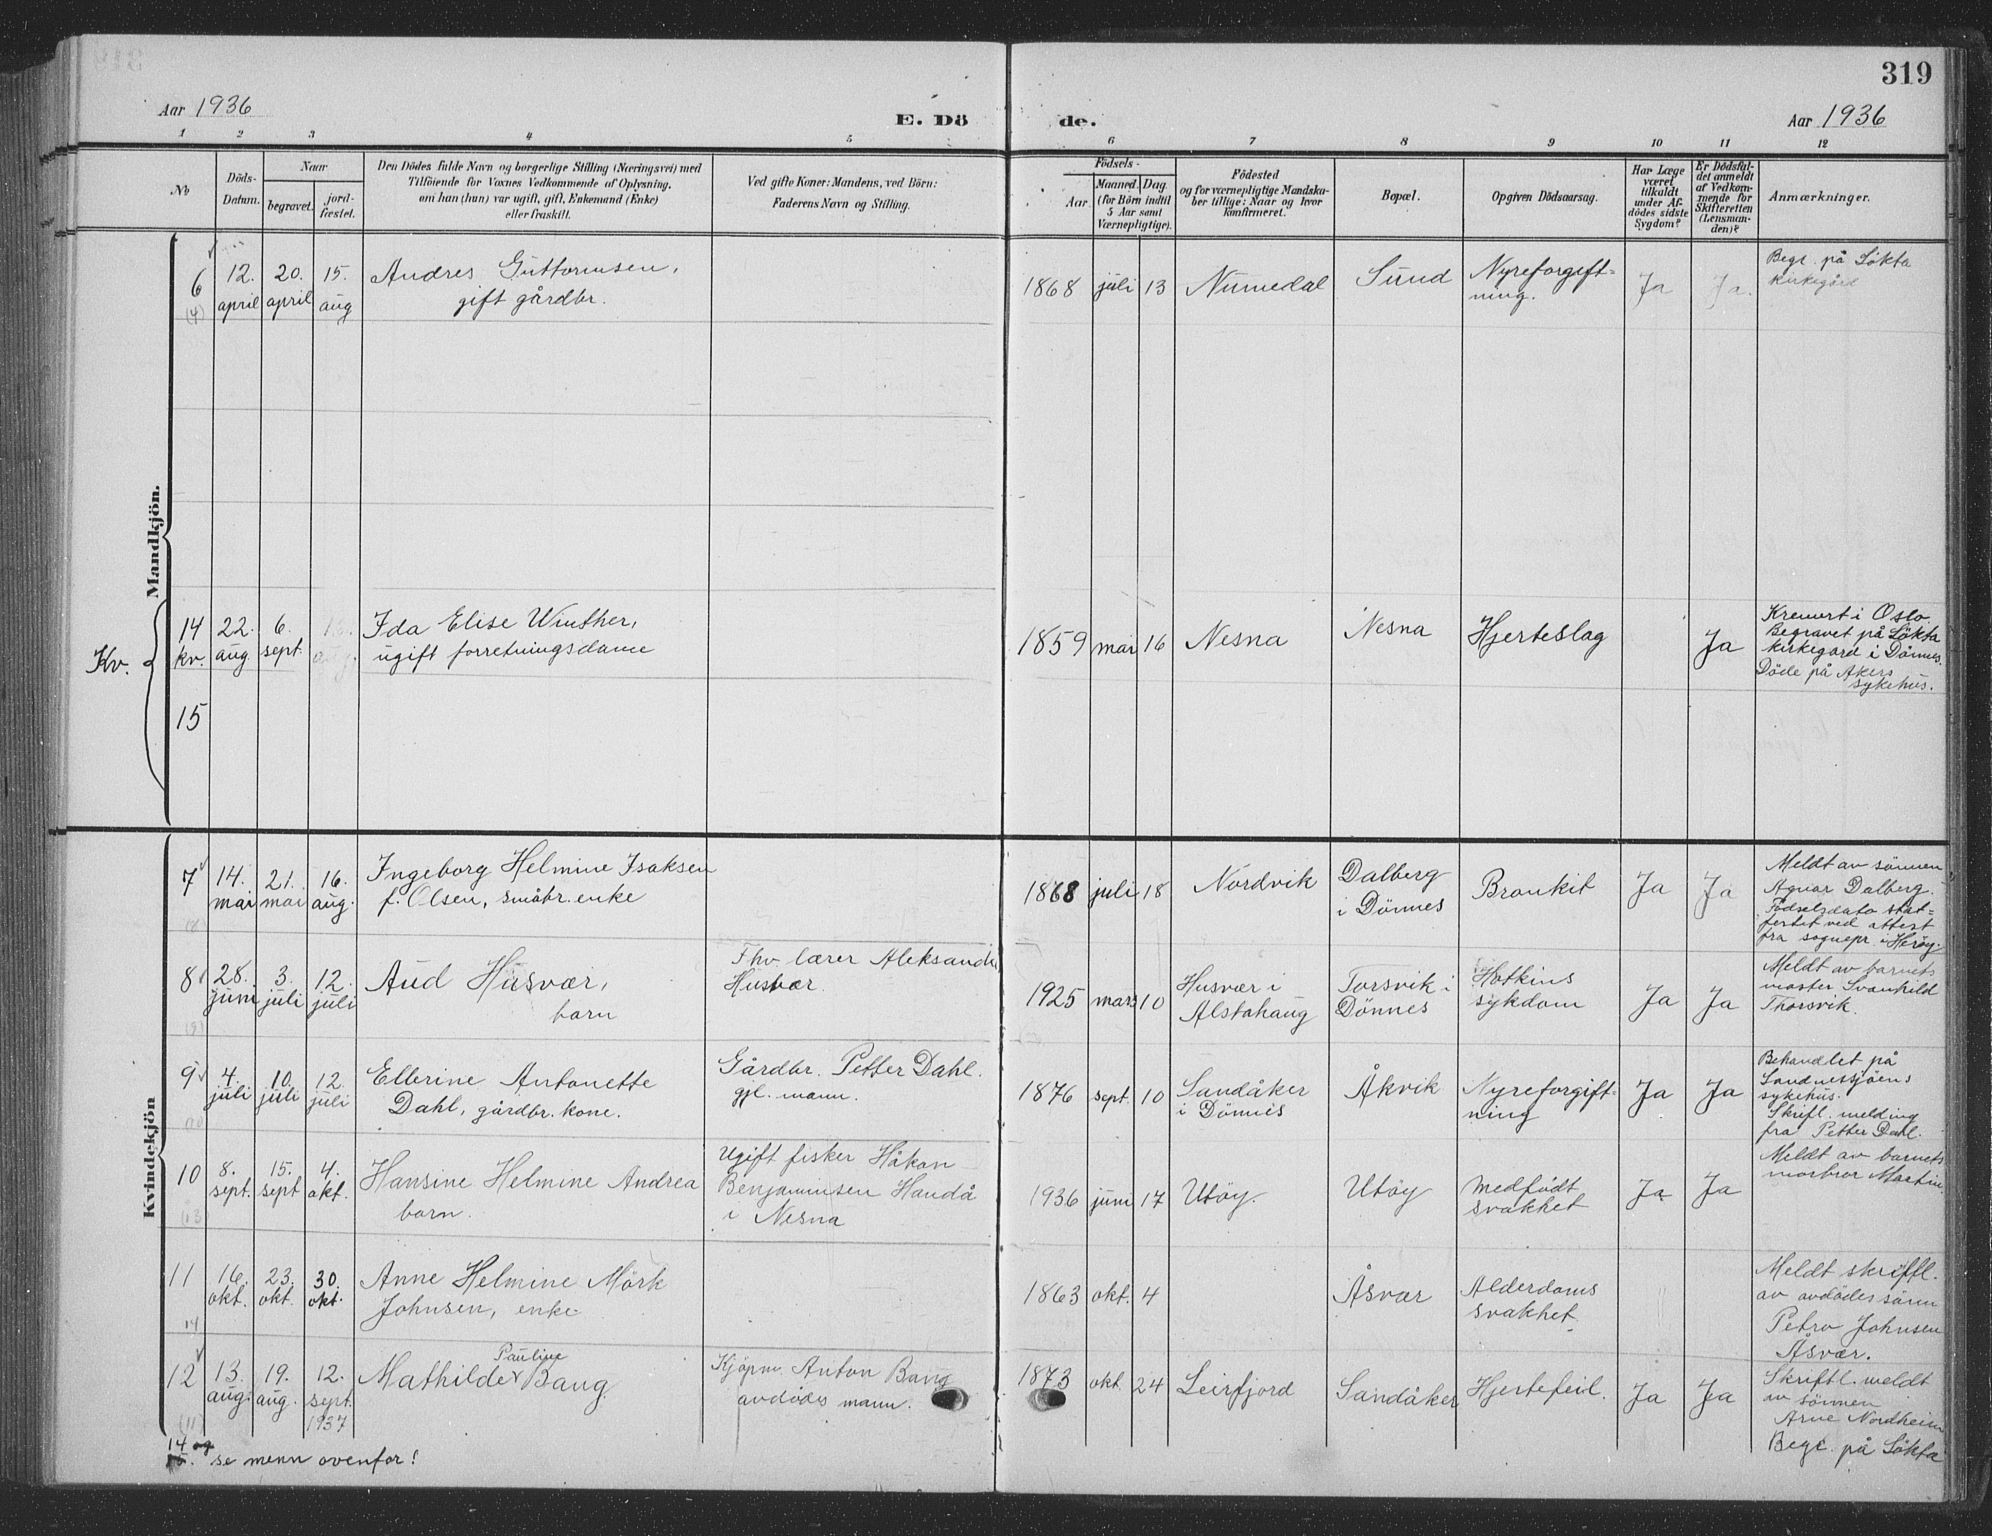 319
Aar 1936
E. Dö
de.
Aar 1936
1 2 3 4 5 6 7 8 9 10 11 12
No
Döds-
Datum.
Naar
begravet.
jord-
fæstet.
Den Dödes fulde Navn og borgerlige Stilling (Næringsvei) med
Tilföiende for Voxnes Vedkommende af Oplysning,
om han (hun) var ugift, gift, Enkemand (Enke)
eller fraskilt.
Ved gifte Koner: Mandens, ved Börn:
Faderens Navn og Stilling.
Födsels-
Aar.
Maaned. Dag
(for Börn indtil
5 Aar samt
Værnepligtige).
Födested
og for værnepligtige Mandska-
ber tillige: Naar og hvor
konfirmeret.
Bopæl.
Opgiven Dödsaarsag.
Har Læge
været
tilkaldt
under Af-
dödes sidste
Sygdom?
Er Dödsfal-
det anmeldt
af Vedkom-
mende for
Skifteretten
(Lensman-
den)?
Anmærkninger.
Mandkjön.
6
(4)
12. april
20. april
15. aug
Andres Guttormsen,
gift gårdbr.
1868 juli 13
Numedal
Sund
Nyreforgift-
ning.
Ja
Ja.
Begr. på Løkta
kirkegård
Kv.
14
kv.
22. aug.
6. sept.
Ida Elise Winther,
ugift forretningsdame
1859 mai 16
Nesna
Nesna
Hjerteslag
Ja
Kremert i Oslo
begravet på Løkta
kirkegård i Dønnes.
Døde på Akers
sykehus.
15
Kvindekjön
7
14. mai
21. mai
16. aug.
Ingeborg Helmine Isaksen
f. Olsen, småbr. enke
1868 juli 18
Nordvik
Dalberg
i Dønnes
Bronkit
Ja
Ja
Meldt av sønnen
Agnar Dalberg.
Fødselsdato stat-
festet ved attest
fra sognepr. i Herøy.
8
28. juni
3. juli
12. juli
Aud Husvær,
barn
Fhv lærer Aleksander
Husvær.
1925 mars 10
Husvær i
Alstahaug
Torsvik i
Dønnes
Hotkins
sykdom
Ja
Ja
Meldt av barnets
moster Svanhild
Thorsvik.
9
4. juli
10. juli
12. juli
Ellerine Antonette
Dahl, gårdbr. kone.
Gårdbr. Petter Dahl.
gjl. mann.
1876 sept. 10
Sandåker
i Dønnes
Åkvik
Nyreforgift-
ning
Ja
Ja
Behandlet på
Sandnessjøens
sykehus.
Skriftl. melding
fra Petter Dahl.
10
8. sept.
15. sept
4. okt.
Hansine Helmine Andrea
barn.
Ugift fisker Håkon
Benjaminsen Handå
i Nesna
1936 juni 17
Utøy.
Utøy
Medfødt
svakhet
Ja
Ja
Meldt av barnets
morbror Martin.
11
14
16. okt.
23. okt.
30. okt.
Anne Helmine Mørk
Johnsen, enke
1863 okt. 4
Åsvær
Alderdoms
svakhet.
Meldt skriftl.
av avdødes sønn
Petro Johnsen
Åsvær.
12
(11)
13. aug.
19. aug.
12. sept. 1937
Pauline
Mathilde Bang.
Kjøpm. Anton Bang
avdøde mann.
1873 okt 24
Leirfjord
Sandåker
Hjertefeil.
Ja
Ja
Skriftl. meldt
av sønnen
Arne Nordheim
Begr. på Løkta
14 og
15. se menn ovenfor!